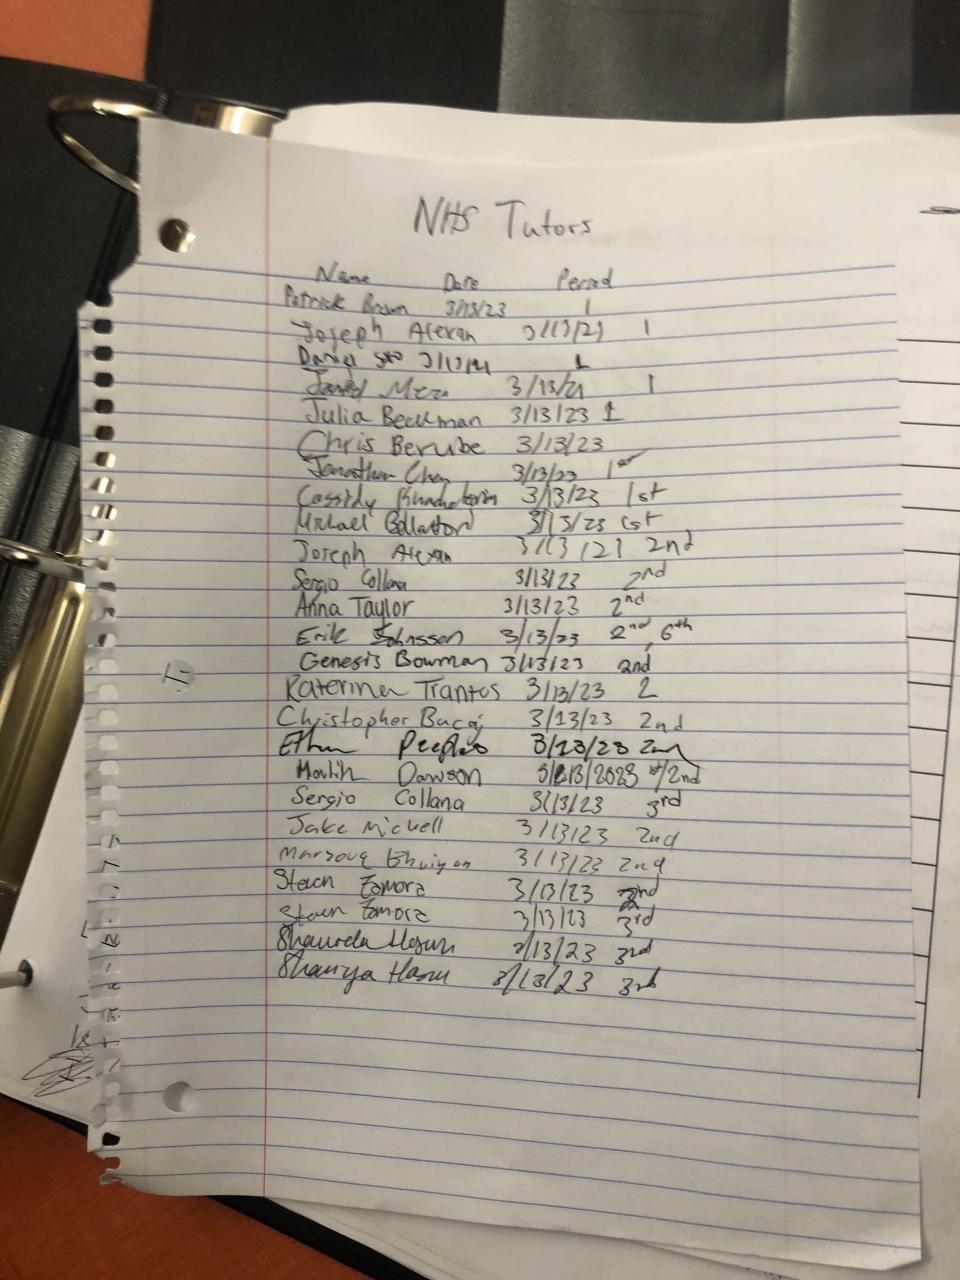 NHS Tutors
Name Date Period
Patrick Brown 3/13/23 1
Joseph Alexan 3/13/23 1
3/13/21 1
3/13/21 1
Julia Beckman 3/13/23 1
Chris Berube 3/13/23
Jonathan 3/13/23 1st
Cassidy 3/13/23 1st
Michael 3/13/23 1st
Joseph Alexan 3/13/23 2nd
Sergio Collana 3/13/23 2nd
Anna Taylor 3/13/23 2nd
Erik Johnsson 3/13/23 2nd, 6th
Genesis Bowman 3/13/23 2nd
Katerina Trantos 3/13/23 2
Christopher Bucaj 3/13/23 2nd
Ethan Peeples 3/13/23 2nd
Dawson 3/13/2023 /2nd
Sergio Collana 3/13/23 3rd
Jake Michell 3/13/23 2nd
Bhuiyan 3/13/23 2nd
Zamora 3/13/23 2nd
Zamora 3/13/23 3rd
3/13/23 3rd
3/13/23 3rd